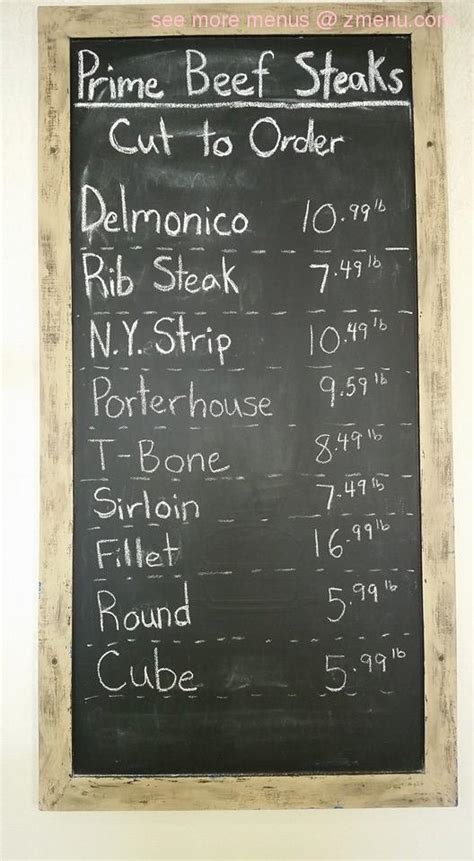 see more menus @ zmenu.com
Prime Beef Steaks
Cut to Order
Delmonico 10.99 lb
Rib Steak 7.49 lb
N.Y. Strip 10.49 lb
Porterhouse 9.59 lb
T-Bone 8.49 lb
Sirloin 7.49 lb
Fillet 16.99 lb
Round 5.99 lb
Cube 5.99 lb